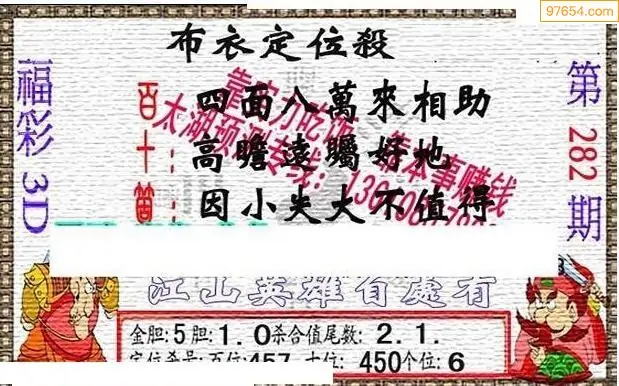 97654.com
布衣定位殺
福彩 3D
第 282 期
百: 四面八萬來相助
十: 高瞻遠矚好地
個: 因小失大不值得
靠实力吃饭 靠本事赚钱
太湖预测专线:
江山英雄自處有
金胆:5胆:1.0杀合值尾数: 2.1.
定位杀号:百位:457 十位: 450个位:6